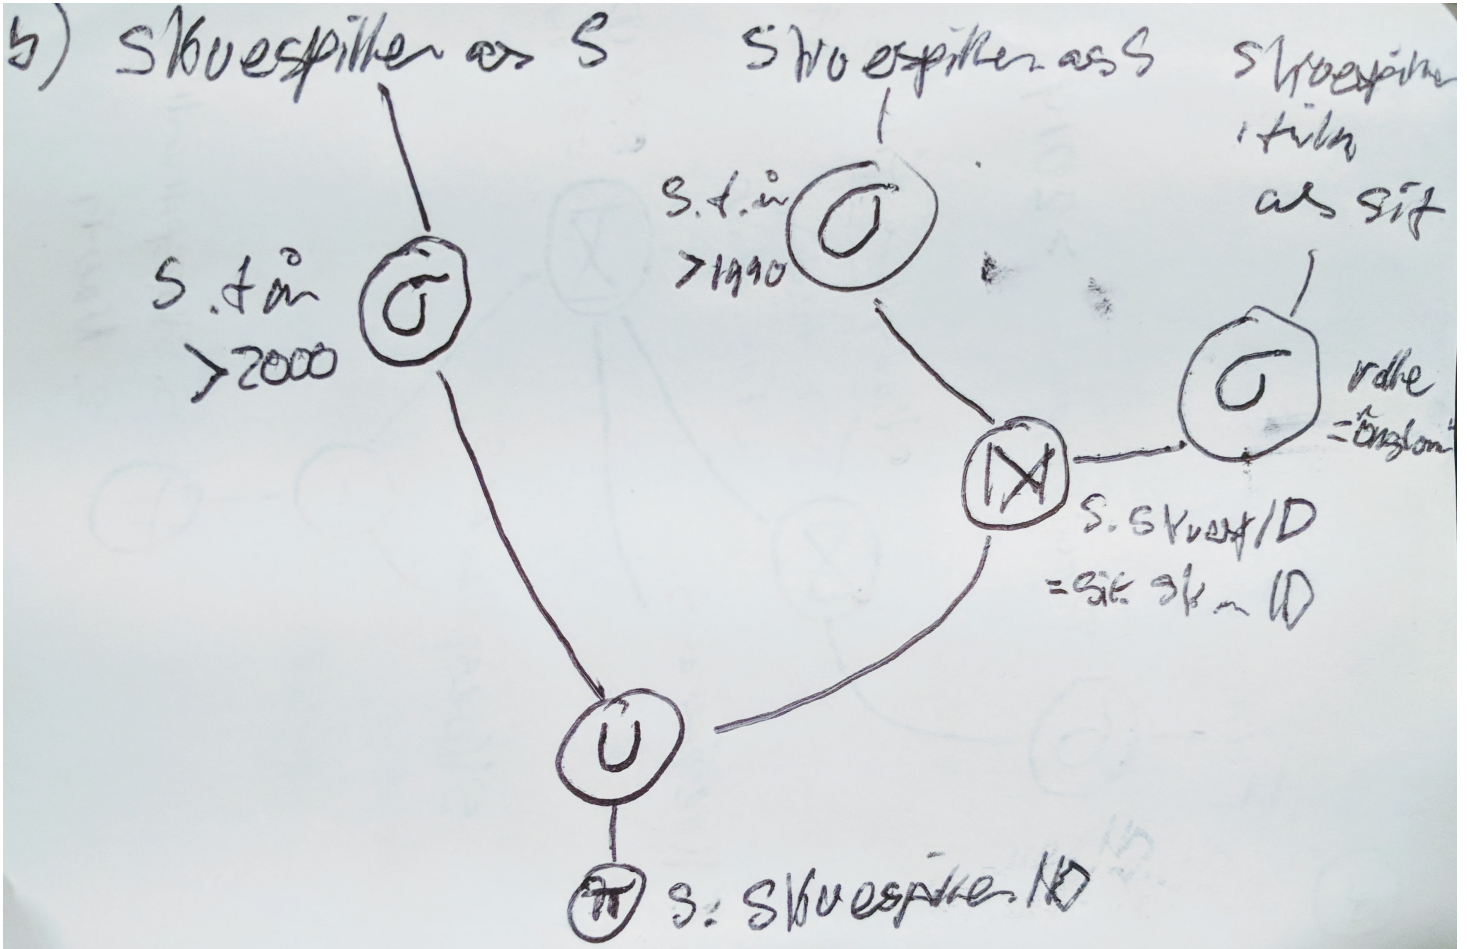 b) Skuespiller as S
Skuespiller as S
Skuespiller
i film
als sif
S.f.år
>1990
σ
S.får
>2000
σ
σ
rolle
=
⋈
S.SkuespID
= sif. Sk ID
U
π S. SkuespillerID